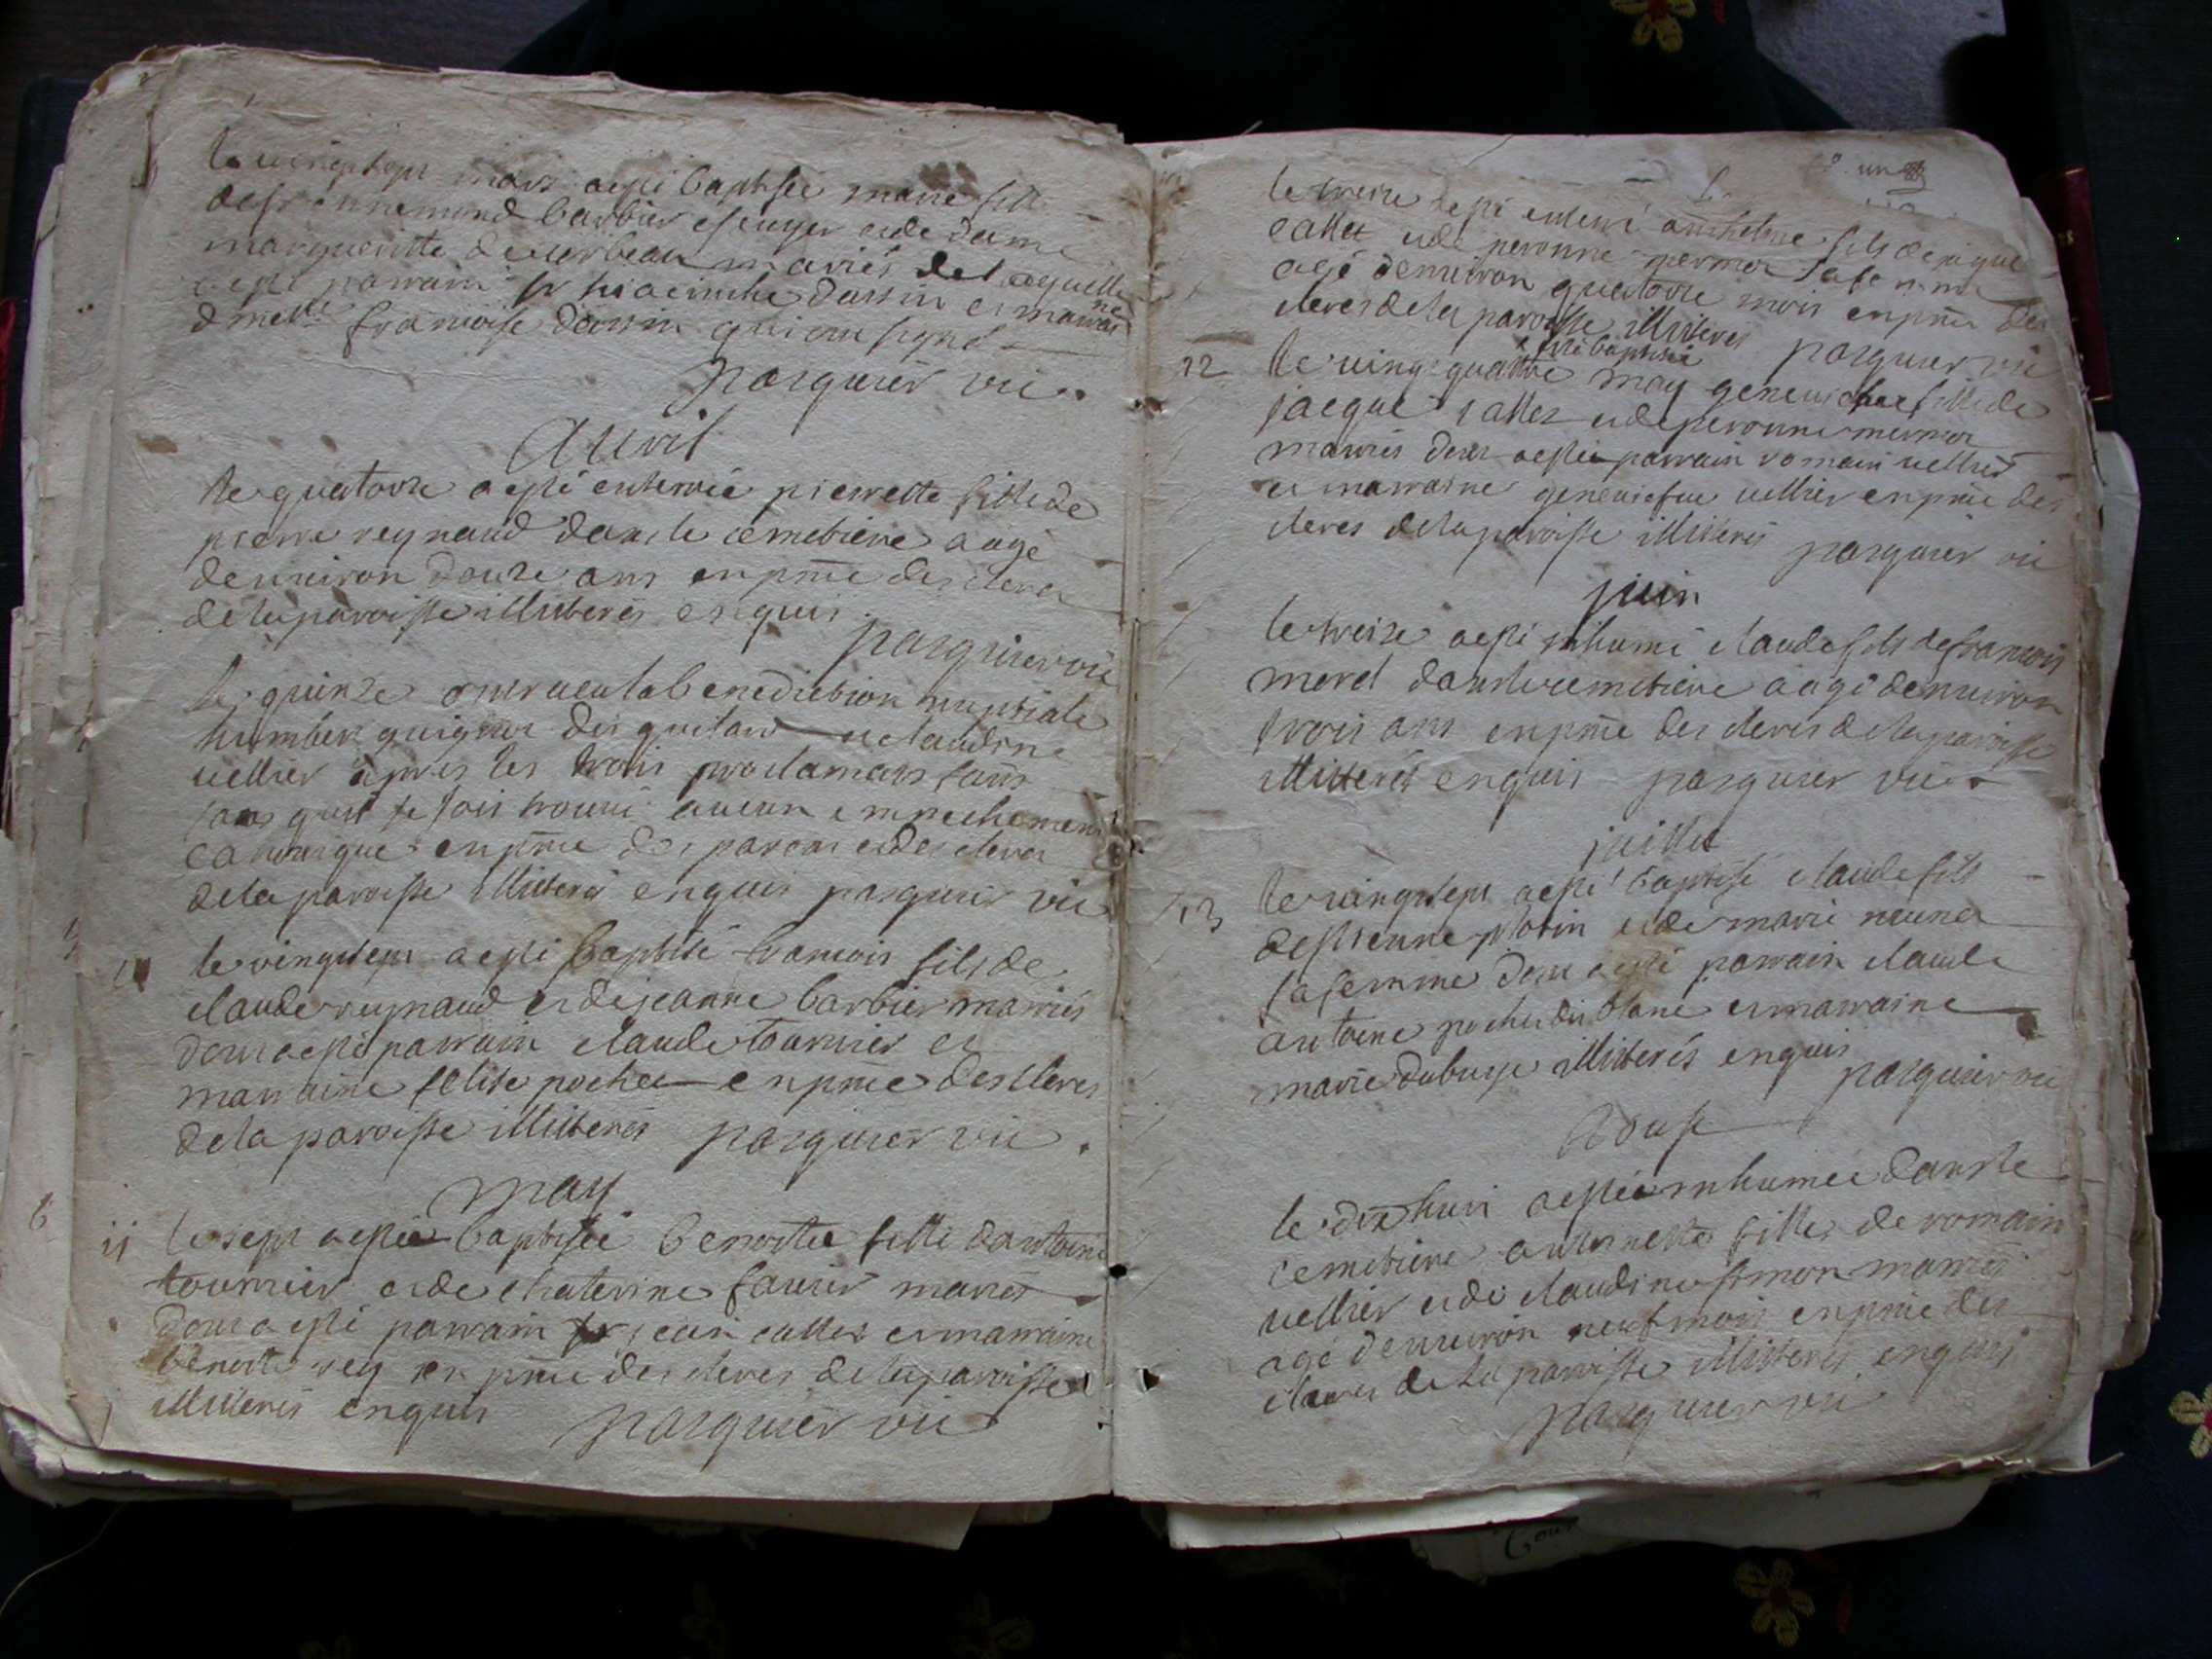 le vingtsept mars a esté baptisée marie fille
de sr annemond barbier escuyer et de dame
margueritte de mariés de laquelle
a esté parrain sr hiacinthe dassin et marraine
dmelle francoise dassin qui ont signé
pasquier vic.
Avril
le quatorze a esté enterrée pierrette fille de
pierre reynaud dans le cemetiere aagé
denviron douze ans en pnce des cleres
de la paroisse illiterés enquis.
pasquier vic
le quinze ont receu la benediction nuptiale
humbert guigner et claudine
vellier apres les trois proclamaons sans
sans quil se soit trouvé aucun empechement
canonique en pnce des parens et des cleres
de la paroisse illiterés enquis pasquier vic
10 le vingtsept a esté baptisé francois fils de
claude reynaud et de jeanne barbier mariés
dont a esté parrain claude tournier et
marraine pochet en pnce des cleres
de la paroisse illiterés pasquier vic.
may
11 le sept a esté baptisée benoitte fille dantoine
tournier et de chaterine favier mariés
dont a esté parrain jean callet et marraine
benoitte rey en pnce des cleres de la paroisse
illiterés enquis pasquier vic
le treize a esté enterré anthelme fils de jaque
callet et de peronne mermet sa femme
agé denviron quatorze mois en pnce des
cleres de la paroisse illiterés pasquier vic
a esté baptisée
12 le vingt quattre may geneviefve fille de
jacque callet et de peronne mermet
mariés dont a esté parrain romain vellier
et marraine geneviefve vellier en pnce des
cleres de la paroisse illiterés pasquier vic
juin
le treize a esté inhumé claude fils de francois
morel dans le cemetiere aagé denviron
trois ans en pnce des cleres de la paroisse
illiterés enquis pasquier vic.
juillet
13 le vingtsept a esté baptisé claude fils
destienne et de marie
sa femme dont a esté parrain claude
antoine pochet et marraine
marie illiterés enquis
pasquier vic
Aoust
le dix huit a esté inhumée dans le
cemetiere fille de romain
vellier et de claudine simon mariés
agé denviron neuf mois en pnce des
cleres de la paroisse illiterés enquis
pasquier vic